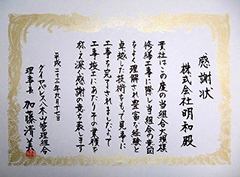 感謝状
株式会社 明和 殿
貴社はこの度の当組合大規模
修繕工事に際し当組合の意図
をよく理解され豊富な経験と
卓越した技術をもって見事に
工事を完了されました
工事竣工にあたりその業績を
称え深く感謝の意を表します
平成二十二年九月十二日
管理組合
理事長 加藤清美